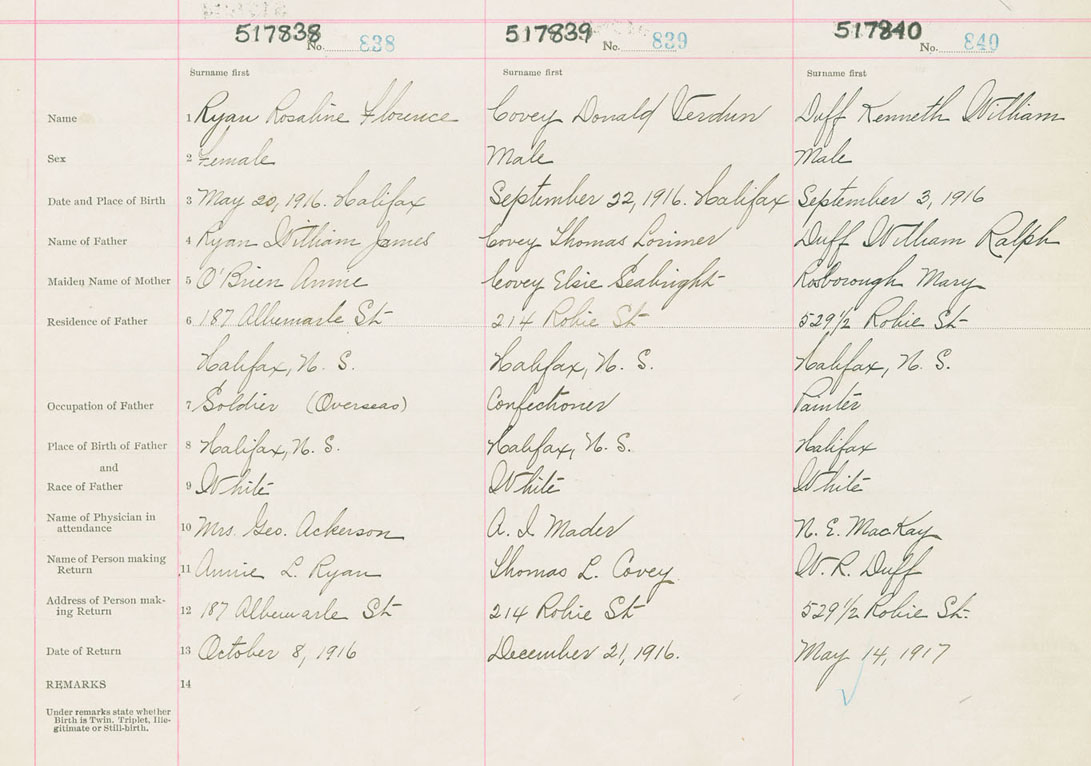 517838 No. 838 517839 No. 839 517840 No. 840
Surname first Surname first Surname first
Name 1 Ryan Rosaline Florence Covey Donald Verdun Duff Kenneth William
Sex 2 Female Male Male
Date and Place of Birth 3 May 20, 1916. Halifax September 22, 1916. Halifax September 3, 1916
Name of Father 4 Ryan William James Covey Thomas Lorimer Duff William Ralph
Maiden Name of Mother 5 O'Brien Annie Covey Elsie Seabright Rosborough Mary
Residence of Father 6 187 Albemarle St 214 Robie St 529 1/2 Robie St
Halifax, N. S. Halifax, N. S. Halifax, N. S.
Occupation of Father 7 Soldier (Overseas) Confectioner Painter
Place of Birth of Father 8 Halifax, N. S. Halifax, N. S. Halifax
and
Race of Father 9 White White White
Name of Physician in
attendance 10 Mrs. Geo. Ackerson A. I Mader N. E. MacKay
Name of Person making
Return 11 Annie L. Ryan Thomas L. Covey W. R. Duff
Address of Person mak-
ing Return 12 187 Albemarle St 214 Robie St 529 1/2 Robie St.
Date of Return 13 October 8, 1916 December 21, 1916. May 14, 1917
REMARKS 14
Under remarks state whether
Birth is Twin, Triplet, Ille-
gitimate or Still-birth.